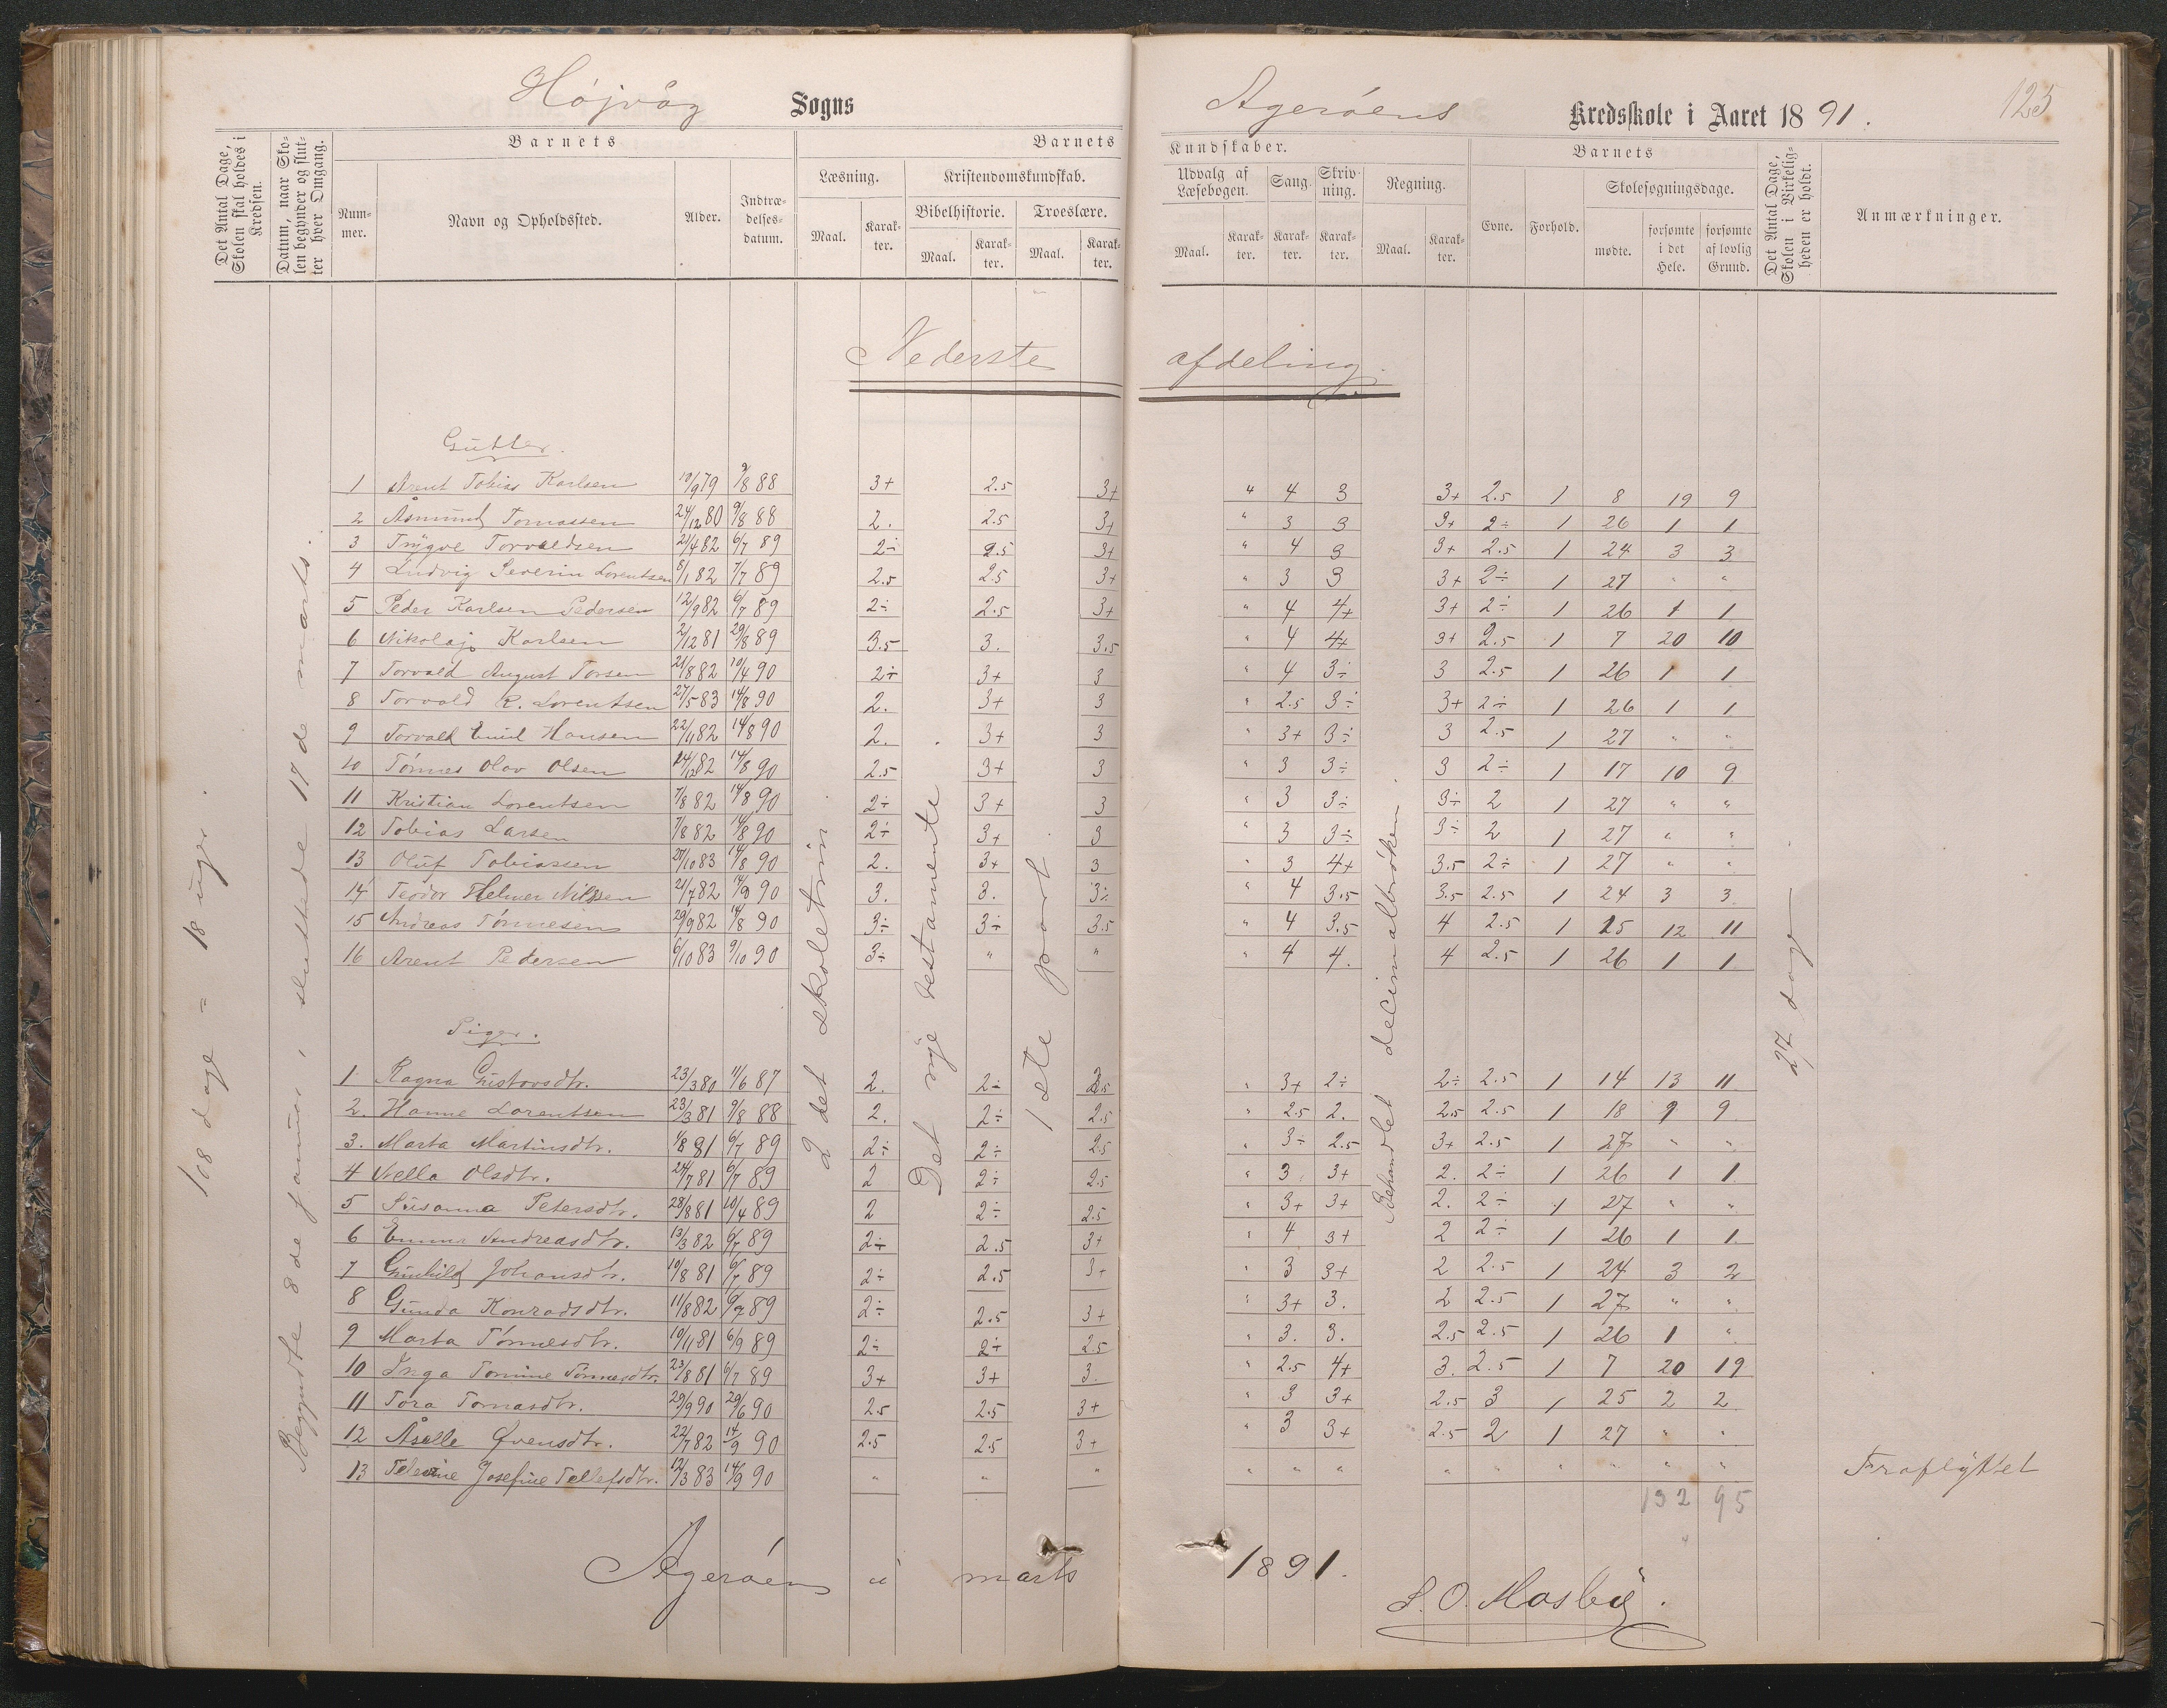 Højvåg Sogns Agerøens Kredsskole i Aaret 1891. 125
Det Antal Dage, Skolen skal holdes i Kredsen.
Datum, naar Skolen begynder og slutter hver Omgang.
Barnets
Nummer.
Navn og Opholdssted.
Alder.
Indtrædelsesdatum.
Barnets Kundskaber.
Læsning. Kristendomskundskab. Udvalg af Læsebogen. Sang. Skrivning. Regning.
Bibelhistorie. Troeslære.
Maal. Karakter. Maal. Karakter. Maal. Karakter. Maal. Karakter. Karakter. Karakter. Maal. Karakter.
Barnets
Evne. Forhold. Skolesøgningsdage.
mødte. forsømte i det Hele. forsømte af lovlig Grund.
Det Antal Dage, Skolen i Virkeligheden er holdt.
Anmærkninger.
Nederste afdeling.
108 dage = 18 uger.
Begyndte 8de januar, sluttede 17de marts.
2det skoletrin.
Det nye testamente.
1ste part.
Behandlet decimalbrøken.
27 dage
Gutter.
1 Arent Tobias Karlsen 10/9 79 9/8 88 3+ 2.5 3+ " 4 3 3+ 2.5 1 8 19 9
2 Åsmund Tomassen 24/12 80 9/8 88 2. 2.5 3+ " 3 3 3+ 2÷ 1 26 1 1
3 Trygve Torvaldsen 21/4 82 6/7 89 2÷ 2.5 3+ " 4 3 3+ 2.5 1 24 3 3
4 Ludvig Severin Lorentsen 8/1 82 7/7 89 2.5 2.5 3+ " 3 3 3+ 2÷ 1 27 " "
5 Peder Karlsen Pedersen 12/9 82 6/7 89 2÷ 2.5 3+ " 4 4+ 3+ 2÷ 1 26 1 1
6 Nikolaj Karlsen 2/12 81 29/8 89 3.5 3. 3.5 " 4 4+ 3+ 2.5 1 7 20 10
7 Torvald August Torsen 21/8 82 10/4 90 2÷ 3+ 3 " 4 3÷ 3 2.5 1 26 1 1
8 Torvald R. Lorentsen 27/5 83 14/8 90 2. 3+ 3 " 2.5 3÷ 3+ 2÷ 1 26 1 1
9 Torvald Emil Hansen 22/11 82 14/8 90 2. 3+ 3 " 3+ 3÷ 3 2.5 1 27 " "
10 Tønnes Olav Olsen 24/12 82 14/8 90 2.5 3+ 3 " 3 3÷ 3 2÷ 1 17 10 9
11 Kristian Lorentsen 7/8 82 14/8 90 2÷ 3+ 3 " 3 3÷ 3÷ 2 1 27 " "
12 Tobias Larsen 7/8 82 14/8 90 2÷ 3+ 3 " 3 3÷ 3÷ 2 1 27 " "
13 Oluf Tobiassen 27/10 83 14/8 90 2. 3+ 3 " 3 4+ 3.5 2÷ 1 27 " "
14 Teodor Helmer Nilssen 21/7 82 14/8 90 3. 3. 3÷ " 4 3.5 3.5 2.5 1 24 3 3
15 Andreas Tønnesen 29/9 82 14/8 90 3÷ 3÷ 3.5 " 4 3.5 4 2.5 1 15 12 11
16 Arent Pedersen 6/10 83 9/10 90 3÷ " " " 4 4. 4 2.5 1 26 1 1
Piger.
1 Ragna Gustavsdtr. 23/3 80 11/6 87 2. 2÷ 2.5 " 3+ 2÷ 2÷ 2.5 1 14 13 11
2. Hanne Lorentsen 23/3 81 9/8 88 2. 2÷ 2.5 " 2.5 2. 2.5 2.5 1 18 9 9
3. Marta Martinsdtr. 1/8 81 6/7 89 2÷ 2÷ 2.5 " 3÷ 2.5 3+ 2.5 1 27 " "
4 Nella Olsdtr. 24/7 81 6/7 89 2 2÷ 2.5 " 3 3+ 2. 2÷ 1 26 1 1
5 Susanna Petersdtr. 28/8 81 10/4 89 2 2÷ 2.5 " 3+ 3+ 2. 2÷ 1 27 " "
6 Emma Andreasdtr. 13/3 82 6/7 89 2÷ 2.5 3+ " 4 3+ 2 2÷ 1 26 1 1
7 Gunhild Johansdtr. 10/8 81 6/7 89 2÷ 2.5 3+ " 3 3+ 2 2.5 1 24 3 2
8 Gunda Konradsdtr. 11/8 82 6/7 89 2÷ 2.5 3+ " 3+ 3. 2 2.5 1 27 " "
9 Marta Tønnesdtr. 10/11 81 6/9 89 2÷ 2÷ 2.5 " 3. 3. 2.5 2.5 1 26 1 "
10 Inga Tomine Tønnesdtr. 23/8 81 6/7 89 3+ 3+ 3. " 2.5 4+ 3. 2.5 1 7 20 19
11 Tora Tomasdtr. 29/9 90 29/6 90 2.5 2.5 3+ " 3 3+ 2.5 3 1 25 2 2
12 Åselle Øvensdtr. 22/7 82 14/9 90 2.5 2.5 3+ " 3 3+ 2.5 2 1 27 " "
13 Josefine Tellefsdtr. 12/3 83 14/9 90 " " " " " " " " " " " " Fraflyttet
132 95
Agerøen u marts 1891.
S. O. Mosby.